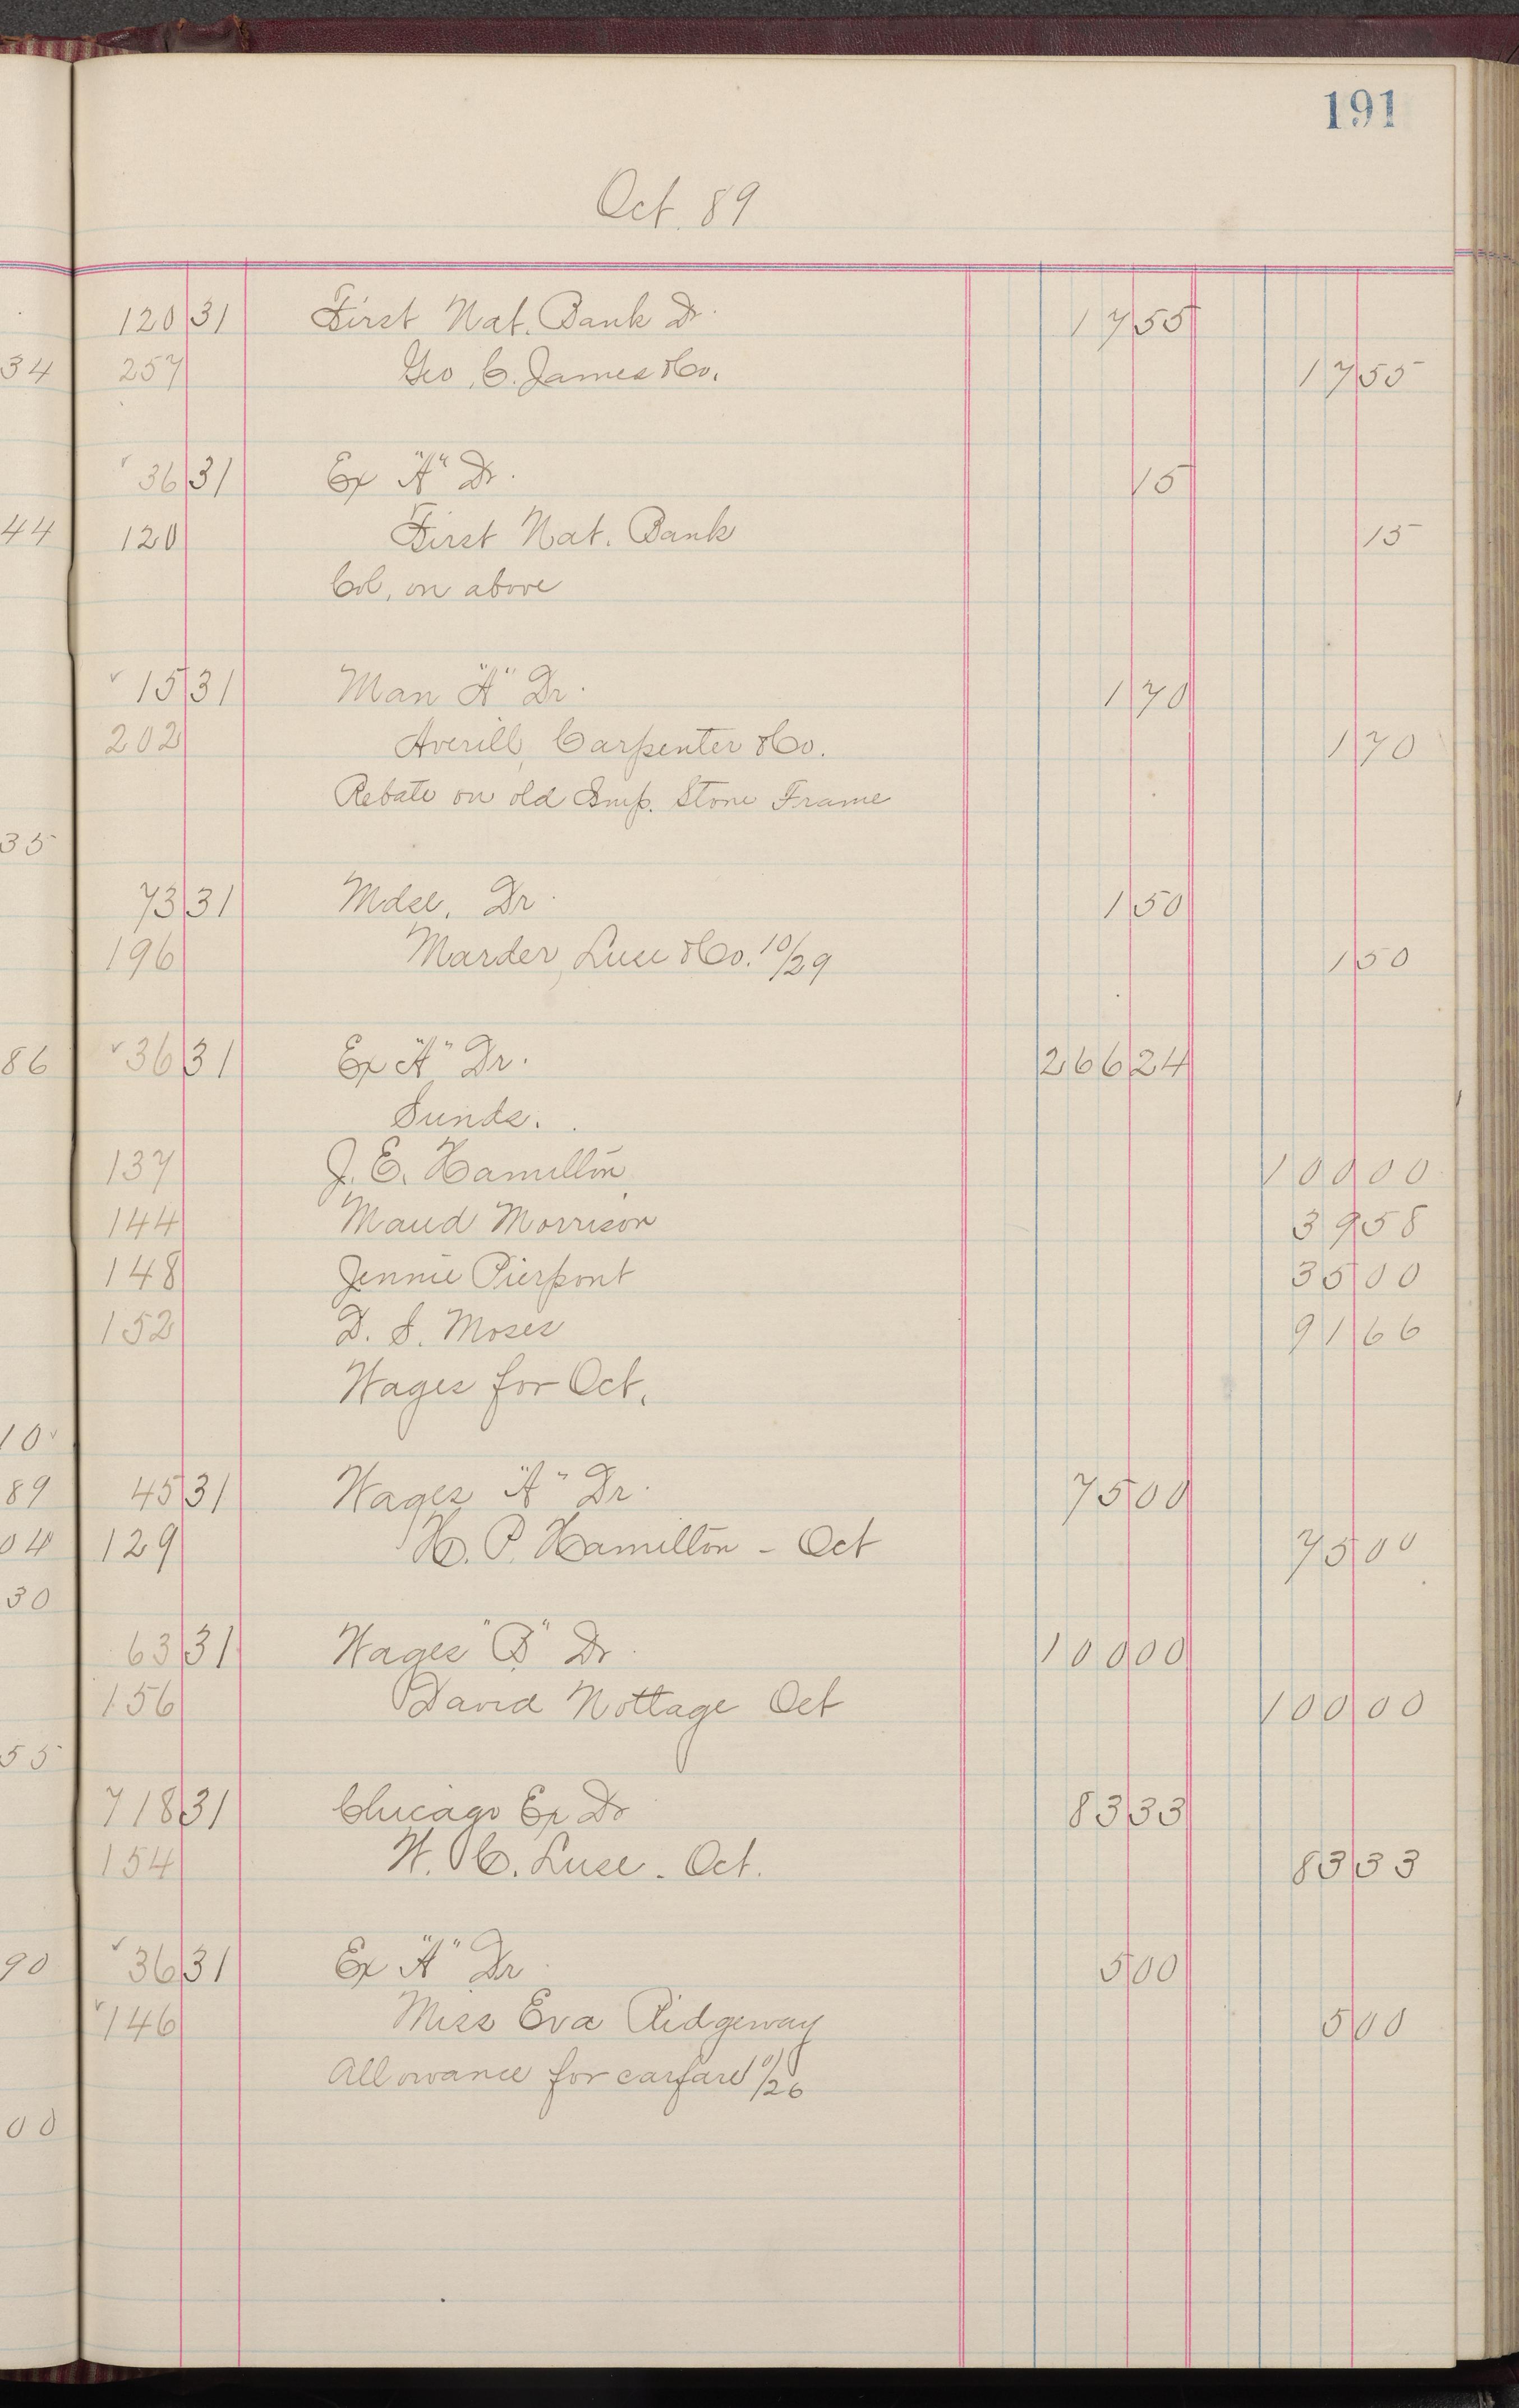 191
Oct. 89
120 31 First Nat. Bank Dr. 17 55
34 257 Geo. C. James & Co. 17 55
36 31 Ex "A" Dr. 15
44 120 First Nat. Bank 15
Col, on above
15 31 Man "A" Dr. 1 70
202 Averill, Carpenter & Co. 1 70
Rebate on old Imp. Stone Frame
35
73 31 Mdse. Dr. 1 50
196 Marder, Luse & Co. 10/29 1 50
86 36 31 Ex "A" Dr. 266 24
Sunds.
137 J. E. Hamilton 100 00
144 Maud Morrison 39 58
148 Jennie Pierpont 35 00
152 D. S. Moses 91 66
Wages for Oct.
10
89 45 31 Wages "A" Dr. 75 00
04 129 H. P. Hamilton - Oct 75 00
30
63 31 Wages "B" Dr 100 00
156 David Nottage Oct 100 00
55
718 31 Chicago Ex Dr 83 33
154 W. C. Luse - Oct. 83 33
90 36 31 Ex "A" Dr 5 00
146 Miss Eva Ridgeway 5 00
Allowance for carfare 10/26
00